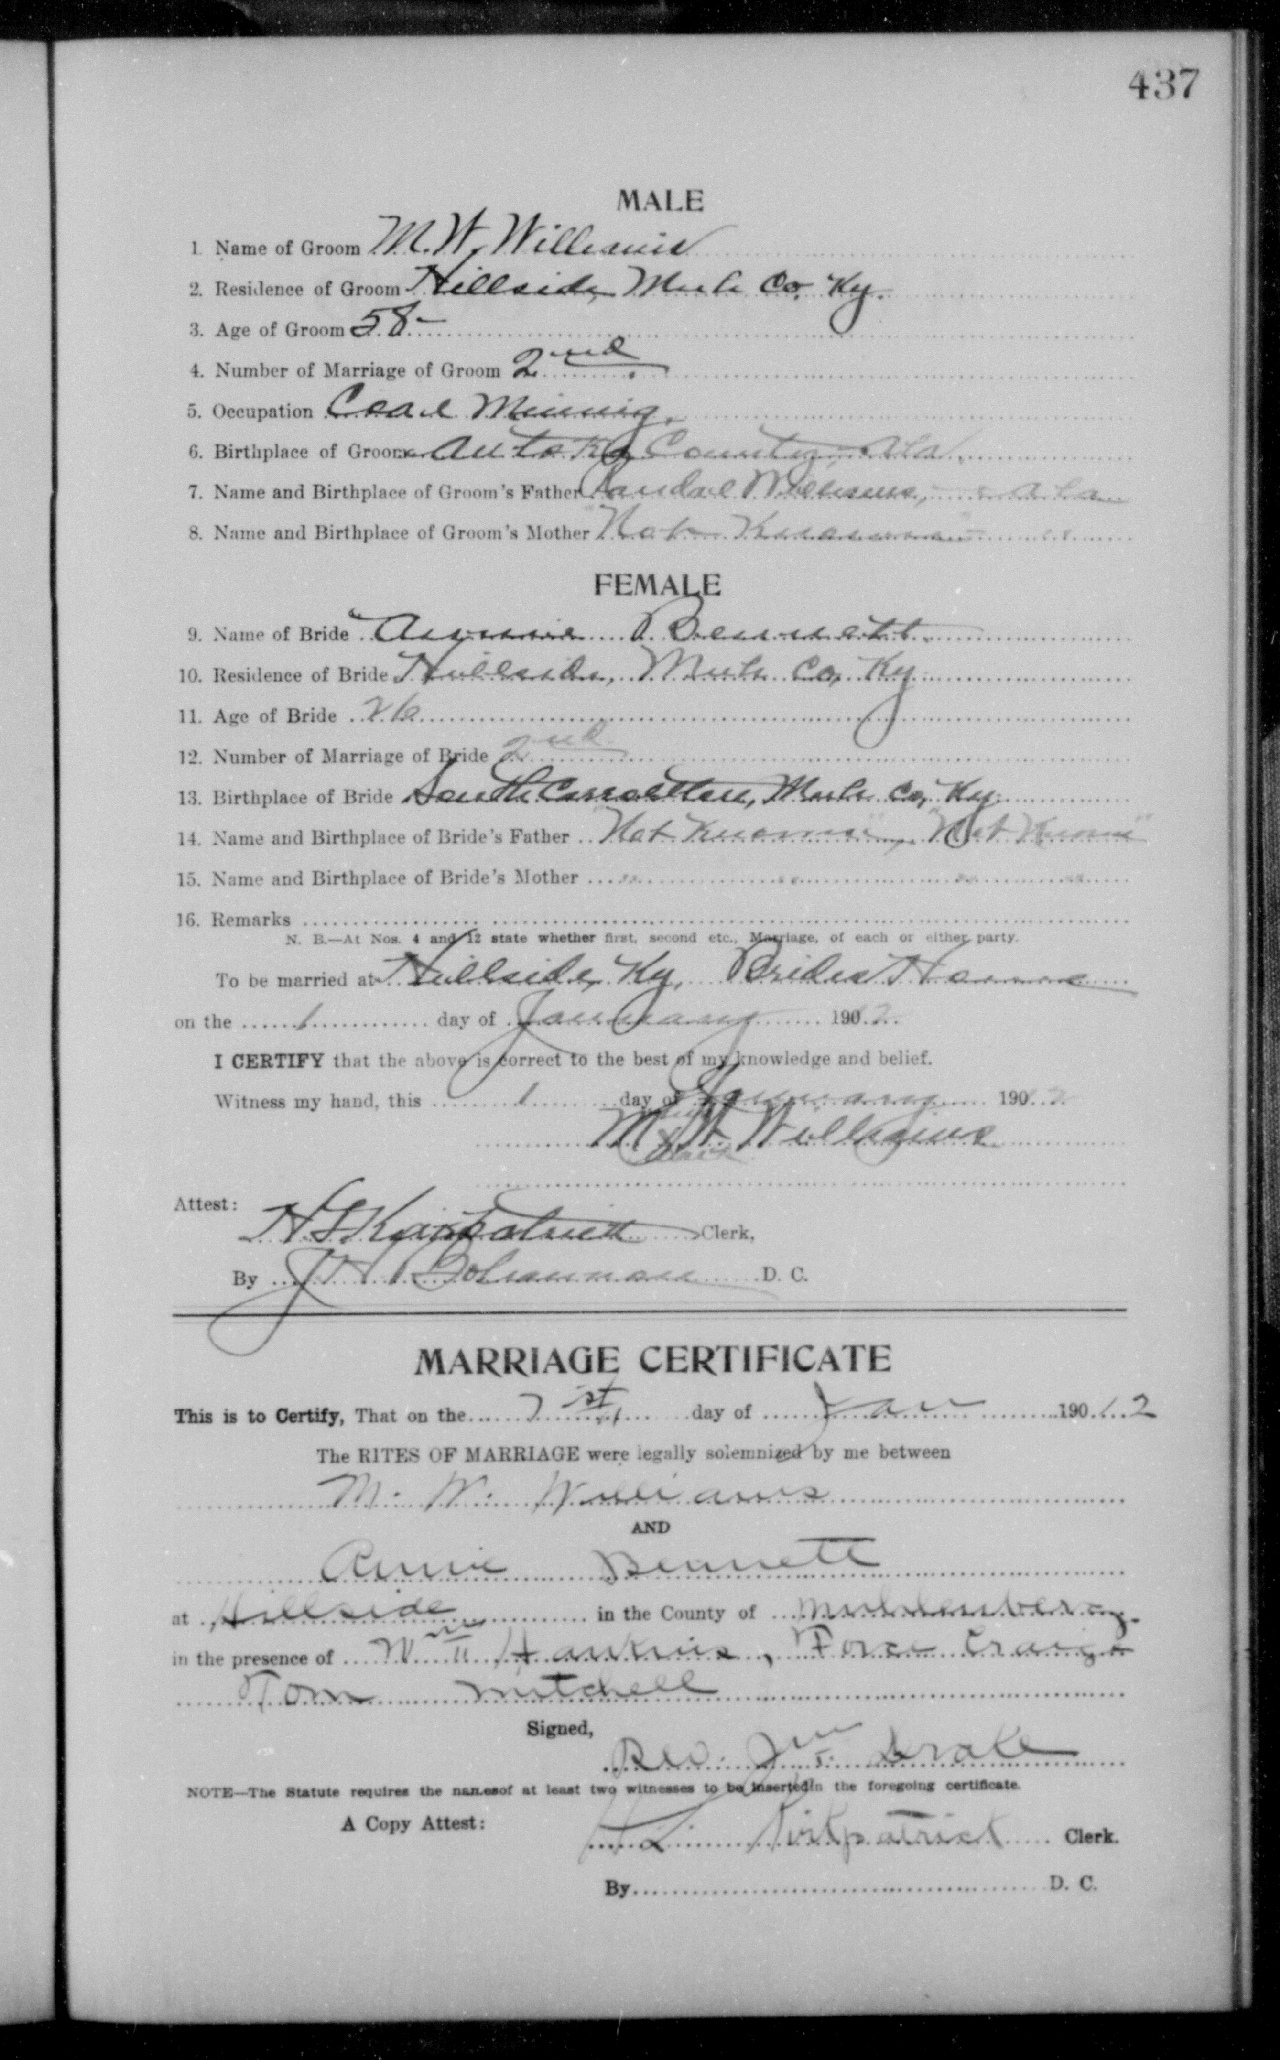 437
MALE
1. Name of Groom M. W. Williams
2. Residence of Groom Hillside, Muh Co. Ky.
3. Age of Groom 58-
4. Number of Marriage of Groom 2nd
5. Occupation Coal Mining.
6. Birthplace of Groom County, Ala.
7. Name and Birthplace of Groom's Father Randal Williams, Ala
8. Name and Birthplace of Groom's Mother "Not Known" " "
FEMALE
9. Name of Bride Annie Bennett.
10. Residence of Bride Hillside, Muh. Co, Ky
11. Age of Bride 26
12. Number of Marriage of Bride 2nd
13. Birthplace of Bride South Carrollton, Muh. Co, Ky.
14. Name and Birthplace of Bride's Father "Not Known", "Not Known"
15. Name and Birthplace of Bride's Mother " " " "
16. Remarks
N. B.—At Nos. 4 and 12 state whether first, second etc., Marriage, of each or either party.
To be married at Hillside, Ky, Brides Home
on the 1 day of January 1912.
I CERTIFY that the above is correct to the best of my knowledge and belief.
Witness my hand, this 1 day of January 1912
M. W. Williams
Attest: Kirkpatrick Clerk,
By J H Bohannon D. C.
MARRIAGE CERTIFICATE
This is to Certify, That on the 1st day of Jan 190 12
The RITES OF MARRIAGE were legally solemnized by me between
M. W. Williams
AND
Annie Bennett
at Hillside in the County of Muhlenberg.
in the presence of Wm Hankins, Craig
Tom Mitchell
Signed,
Rev. Drake
NOTE—The Statute requires the names of at least two witnesses to be inserted in the foregoing certificate.
A Copy Attest: Kirkpatrick Clerk.
By D. C.